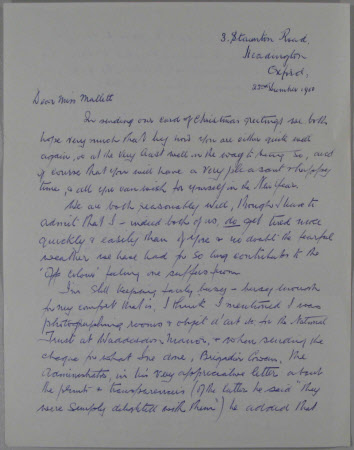 3. Staunton Road,
Headington
Oxford,
22nd December 1960
Dear Miss Mallett
In sending our card of Christmas greetings we both
hope very much that by now you are either quite well
again, or at the very least well on the way to being so, and
of course that you will have a very pleasant & happy
time, & all you can wish for yourself in the New Year.
We are both reasonably well, though I have to
admit that I - indeed both of us, do get tired more
quickly & easily than of yore & no doubt the fearful
weather we have had for so long contributes to the
"off colour" feeling one suffers from.
I'm still keeping fairly busy - busy enough
for my comfort that is, I think I mentioned I was
photographing rooms & objet d'art etc for the National
Trust at Waddesdon Manor, & when sending the
cheque for what I've done, Brigadier, the
Administrator, in his very appreciative letter about
the prints & transparencies (of the latter he said "they
were simply delighted with them") he added that